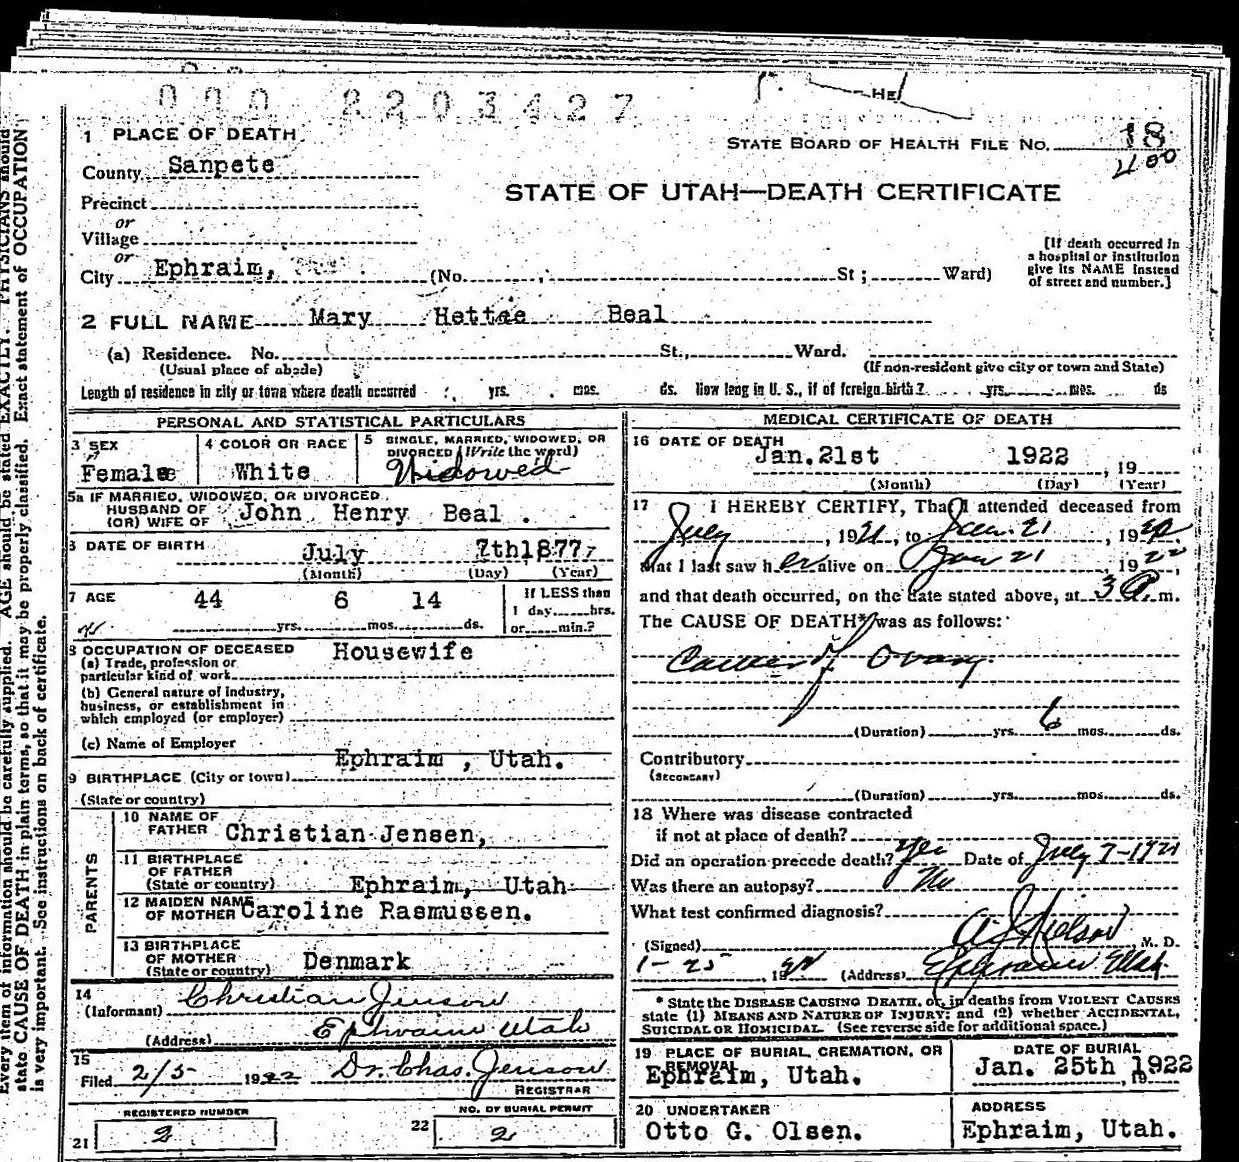 000 2203427
HE
1 PLACE OF DEATH
STATE BOARD OF HEALTH FILE No. 18
400
County Sanpete
STATE OF UTAH—DEATH CERTIFICATE
Precinct
or
Village
or
City Ephraim, (No. St; Ward)
[If death occurred in
a hospital or institution
give its NAME instead
of street and number.]
2 FULL NAME Mary Hettae Beal
(a) Residence. No. St., Ward.
(Usual place of abode) (If non-resident give city or town and State)
Length of residence in city or town where death occurred yrs. mos. ds. How long in U. S., if of foreign birth? yrs. mos. ds
PERSONAL AND STATISTICAL PARTICULARS
3 SEX
Female
4 COLOR OR RACE
White
5 SINGLE, MARRIED, WIDOWED, OR
DIVORCED (Write the word)
Widowed
5a IF MARRIED, WIDOWED, OR DIVORCED
HUSBAND OF
(OR) WIFE OF John Henry Beal.
6 DATE OF BIRTH July 7th 1877
(Month) (Day) (Year)
7 AGE 44 6 14
yrs. mos. ds.
If LESS than
1 day hrs.
or min.?
8 OCCUPATION OF DECEASED Housewife
(a) Trade, profession or
particular kind of work
(b) General nature of industry,
business, or establishment in
which employed (or employer)
(c) Name of Employer
Ephraim, Utah.
9 BIRTHPLACE (City or town)
(State or country)
PARENTS
10 NAME OF
FATHER Christian Jensen,
11 BIRTHPLACE
OF FATHER
(State or country) Ephraim, Utah
12 MAIDEN NAME
OF MOTHER Caroline Rasmussen.
13 BIRTHPLACE
OF MOTHER
(State or country) Denmark
14
(Informant) Christian Jenson
(Address) Ephraim Utah
15
Filed 2/5 1922 Dr. Chas. Jenson
REGISTRAR
REGISTERED NUMBER
21 2
NO. OF BURIAL PERMIT
22 2
MEDICAL CERTIFICATE OF DEATH
16 DATE OF DEATH
Jan. 21st 1922, 19
(Month) (Day) (Year)
17 I HEREBY CERTIFY, That I attended deceased from
July, 1921, to Jan. 21, 1922
that I last saw her alive on Jan 21 1922,
and that death occurred, on the date stated above, at 3 P. m.
The CAUSE OF DEATH* was as follows:
Cancer of Ovary.
(Duration) yrs. 6 mos. ds.
Contributory
(SECONDARY)
(Duration) yrs. mos. ds.
18 Where was disease contracted
if not at place of death?
Did an operation precede death? Yes Date of July 7-1921
Was there an autopsy? No
What test confirmed diagnosis?
(Signed) A J Nielson M. D.
1-25, 1922 (Address) Ephraim Utah
* State the DISEASE CAUSING DEATH, or, in deaths from VIOLENT CAUSES
state (1) MEANS AND NATURE OF INJURY; and (2) whether ACCIDENTAL,
SUICIDAL OR HOMICIDAL. (See reverse side for additional space.)
19 PLACE OF BURIAL, CREMATION, OR
REMOVAL
Ephraim, Utah.
DATE OF BURIAL
Jan. 25th 1922
, 19
20 UNDERTAKER
Otto G. Olsen.
ADDRESS
Ephraim, Utah.
Every item of information should be carefully supplied. AGE should be stated EXACTLY. PHYSICIANS should
state CAUSE OF DEATH in plain terms, so that it may be properly classified. Exact statement of OCCUPATION
is very important. See instructions on back of certificate.